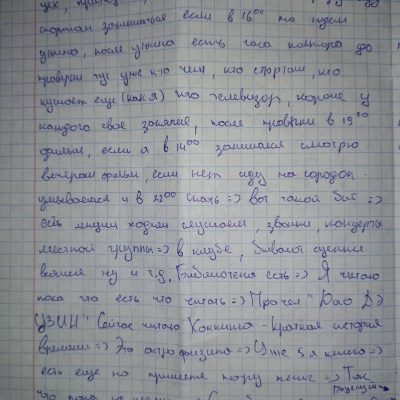 цех, при
спортом заниматься если в 16⁰⁰ то идем
ужина, после ужина есть часа полтора до
проверки тут уже кто чем, кто спортом, кто
кушает еще (как я) кто телевизор, короче у
каждого свое занятие, после проверки в 19³⁰
фильм, если я в 14⁰⁰ занимался смотрю
вечером фильм, если нет иду на городок.
умываемся и в 22⁰⁰ спать => вот такой быт =>
есть лекции ходим слушаем, звонки, концерты
местной группы => в клубе, бывают сценки
всякие ну и т.д. Библиотека есть => Я читаю
пока что есть что читать => Прочел "Дао Дэ
Цзин" Сейчас читаю Хоккинга - краткая история
времени => Это астрофизика => Уже 5я книга =>
есть еще но примете пару книг => Так